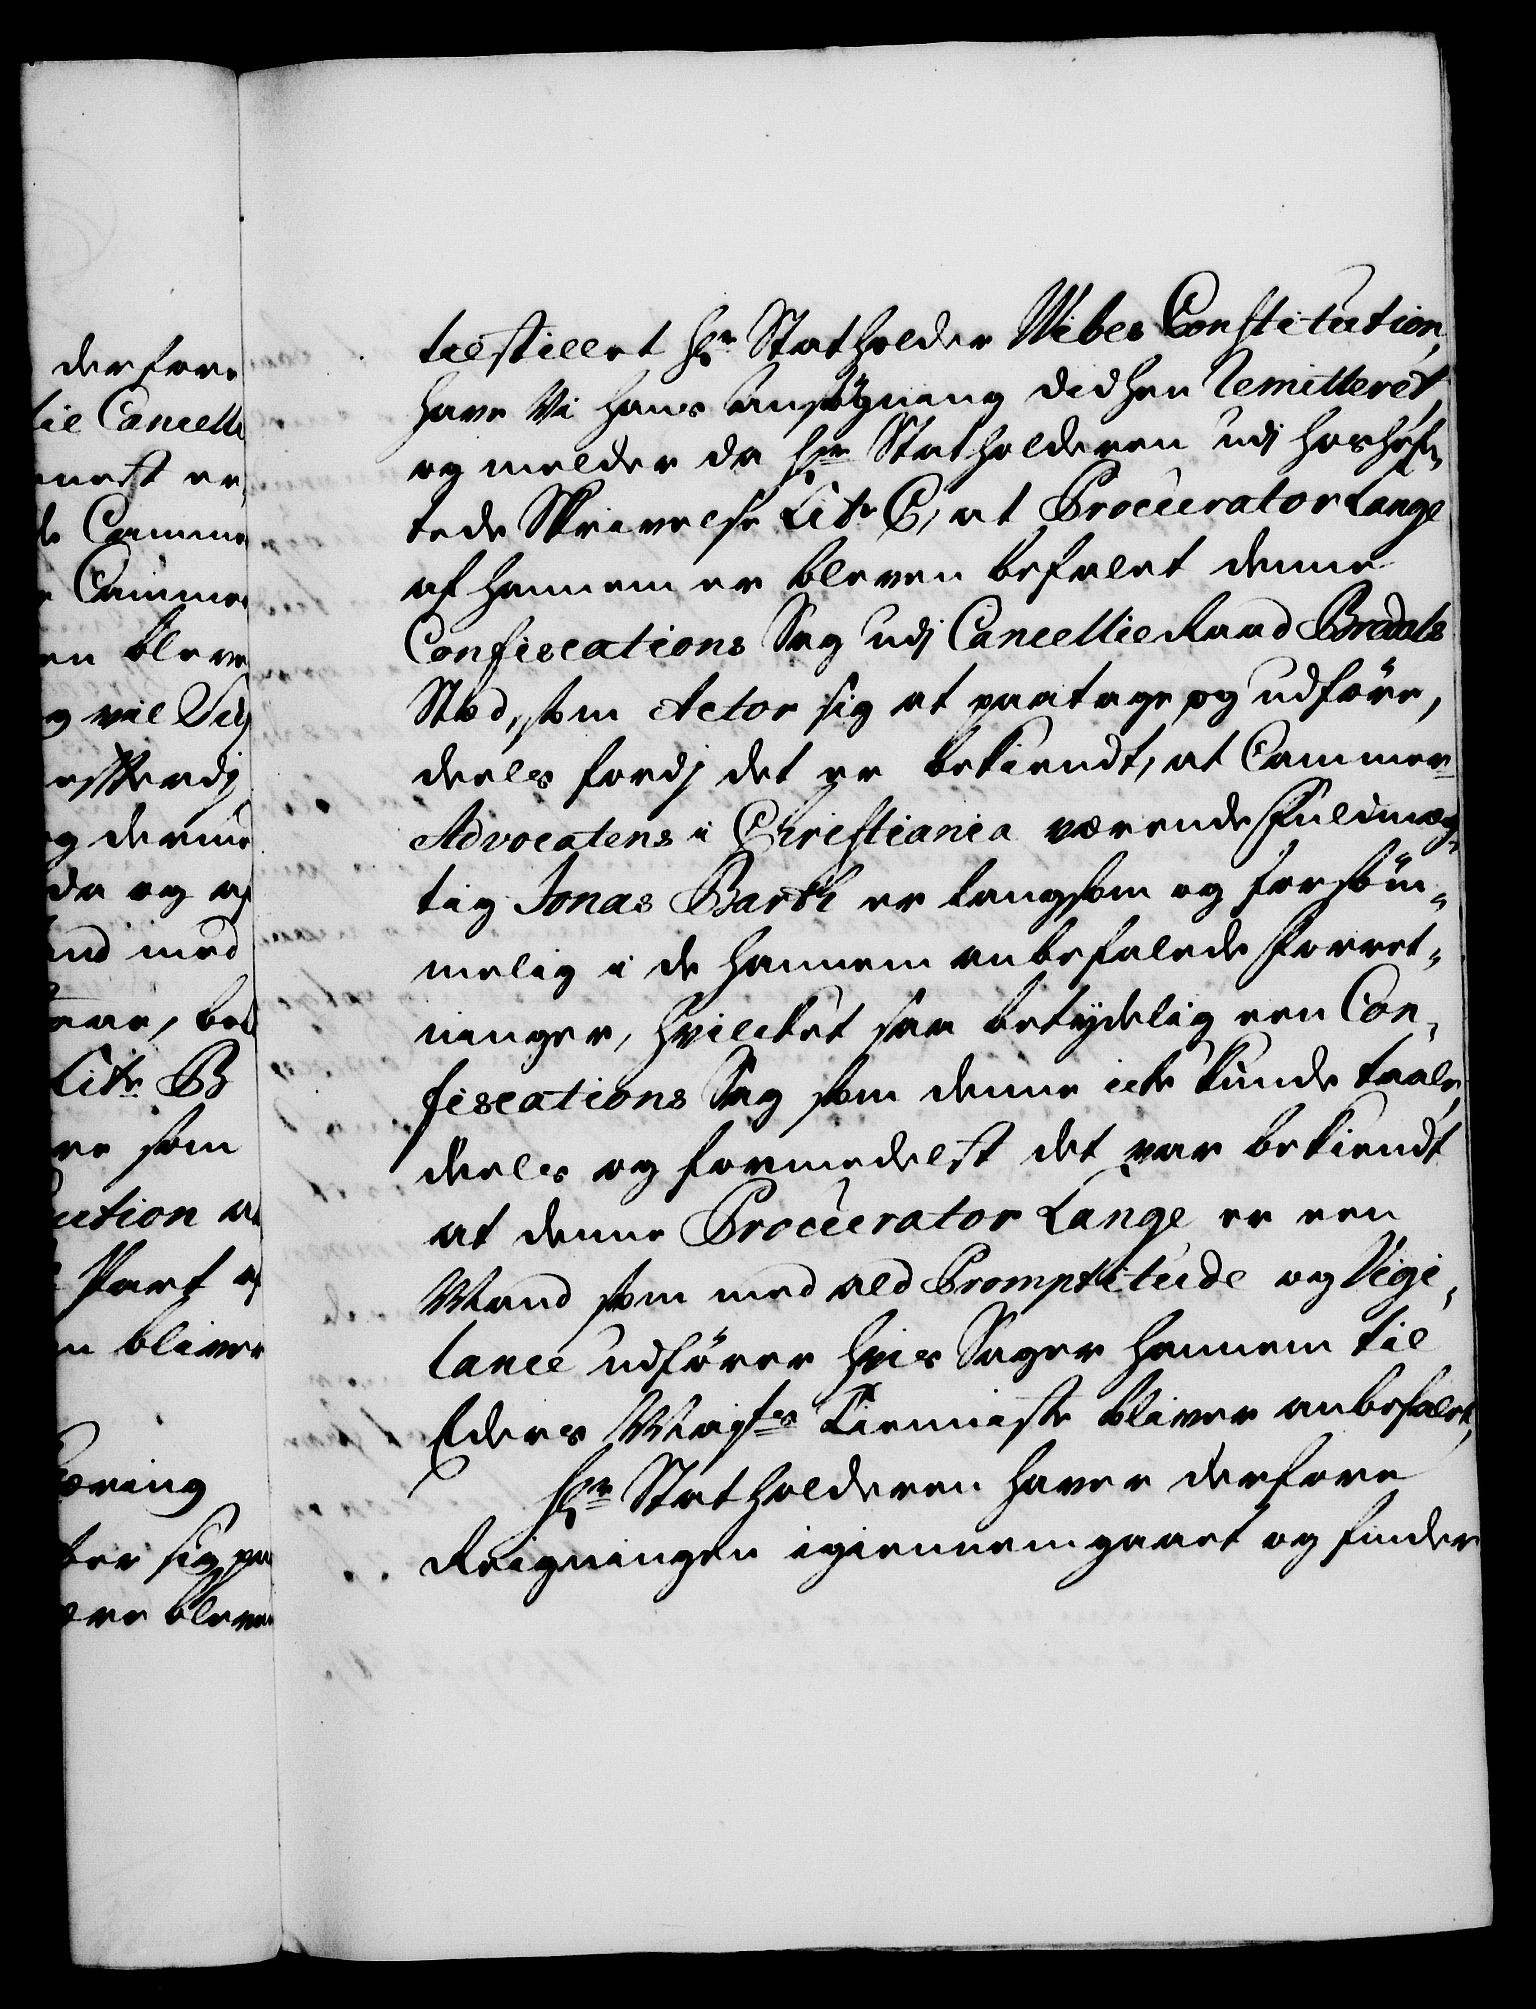 derfore
til Cancelli
nest er
de Camme
e Camme
en bleve
g vil Sig
estferdj
g denne
da og af
nd med
rer, bel
Litr B
re som
ution at
Part af
n bliver
æring
ter sig paa
ere bleven
tilstillet Hr Statholder Wibes Constitution,
have Vi hans Ansøgning didhen Remitteret,
og melder da Hr Statholderen udj hoshæf-
tede Skrivelse Litr C, at Procurator Lange
af hannem er bleven befalet denne
Confiscations Sag udj Cancellie Raad Bredals
Stæd, som Actor sig at paatage og udføre,
deels fordj det er bekiendt, at Cammer-
Advocatens i Christiania værende Fuldmæg-
tig Jonas Barth er langsom og forsøm-
melig i de hannem anbefalede Forret-
ninger, hvilcket saa betydelig een Con-
fiscations Sag som denne icke kunde taale,
deels og formedelst det var bekiendt
at denne Procurator Lange er een
Mand som med ald Promptitude og Vigi-
lance udfører hvis Sager hannem til
Eders Mayts Tienniste bliver anbefalet,
Hr Statholderen haver derfore
Reigningen igiennemgaaet og finder